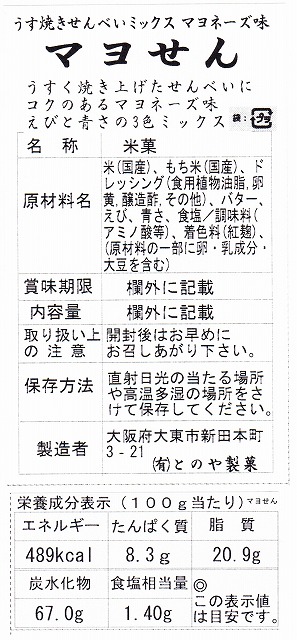 うす焼きせんべいミックス マヨネーズ味
マヨせん
うすく焼き上げたせんべいに
コクのあるマヨネーズ味
えびと青さの3色ミックス 袋: プラ
名称 米菓
原材料名
米(国産)、もち米(国産)、ド
レッシング(食用植物油脂,卵
黄,醸造酢,その他)、バター、
えび、青さ、食塩/調味料(
アミノ酸等)、着色料(紅麹)、
(原材料の一部に卵・乳成分・
大豆を含む)
賞味期限 欄外に記載
内容量 欄外に記載
取り扱い上 開封後はお早めに
の注意 お召しあがり下さい。
保存方法
直射日光の当たる場所
や高温多湿の場所をさ
けて保存してください。
製造者
大阪府大東市新田本町
3-21
(有)とのや製菓
栄養成分表示(100g当たり)マヨせん
エネルギー たんぱく質 脂質
489kcal 8.3g 20.9g
炭水化物 食塩相当量 ◎
67.0g 1.40g この表示値
は目安です。